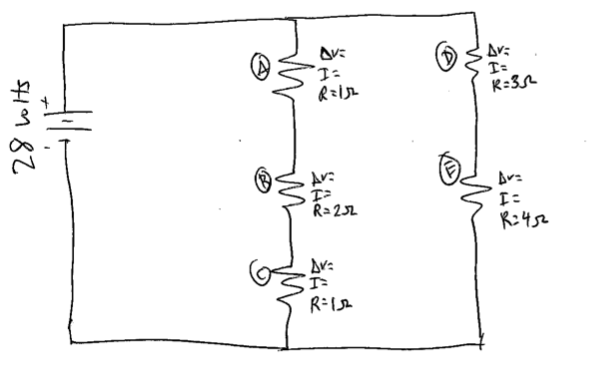 28 volts
+
-
A
ΔV=
I=
R=1Ω
B
ΔV=
I=
R=2Ω
C
ΔV=
I=
R=1Ω
D
ΔV=
I=
R=3Ω
E
ΔV=
I=
R=4Ω